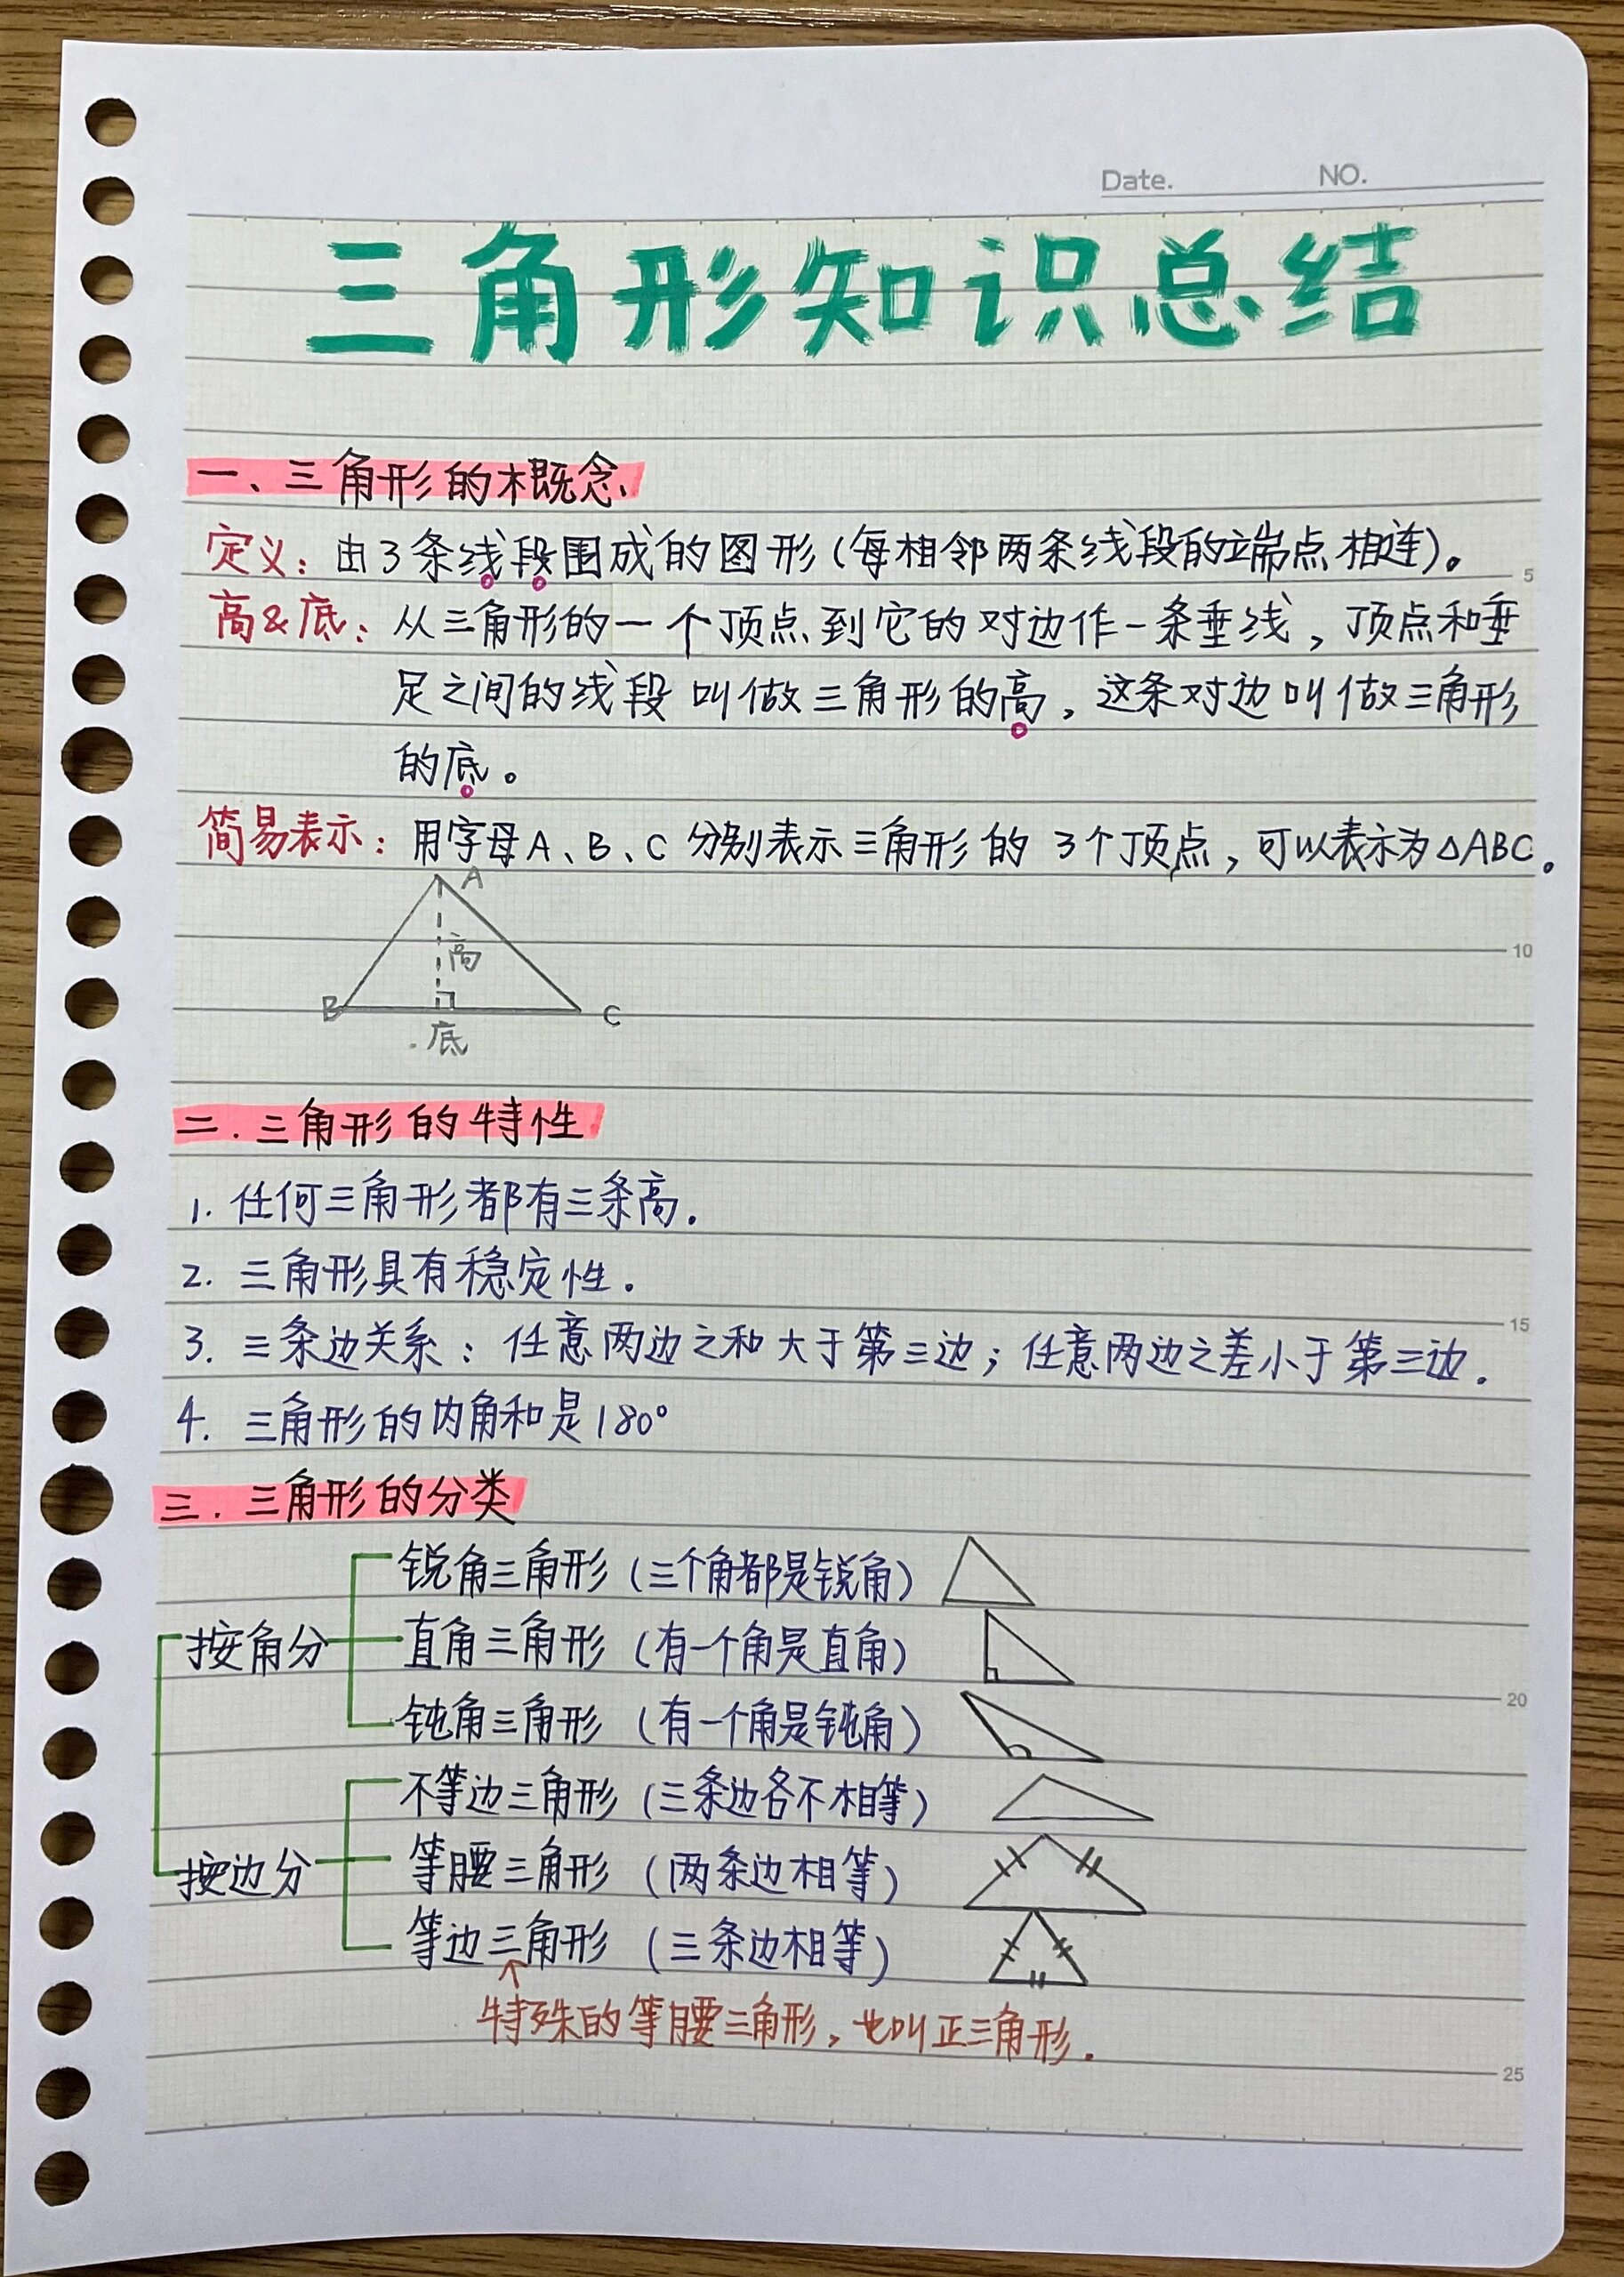 Date. NO.
三角形知识总结
一、三角形的概念
定义：由3条线段围成的图形（每相邻两条线段的端点相连）。
5
高&底：从三角形的一个顶点到它的对边作一条垂线，顶点和垂
足之间的线段叫做三角形的高，这条对边叫做三角形
的底。
简易表示：用字母A、B、C分别表示三角形的3个顶点，可以表示为△ABC。
A
高
10
B
C
底
二.三角形的特性
1.任何三角形都有三条高.
2.三角形具有稳定性.
15
3.三条边关系：任意两边之和大于第三边；任意两边之差小于第三边.
4.三角形的内角和是180°
三.三角形的分类
锐角三角形（三个角都是锐角）
按角分 直角三角形（有一个角是直角）
20
钝角三角形（有一个角是钝角）
不等边三角形（三条边各不相等）
按边分 等腰三角形（两条边相等）
等边三角形（三条边相等）
特殊的等腰三角形，也叫正三角形.
25